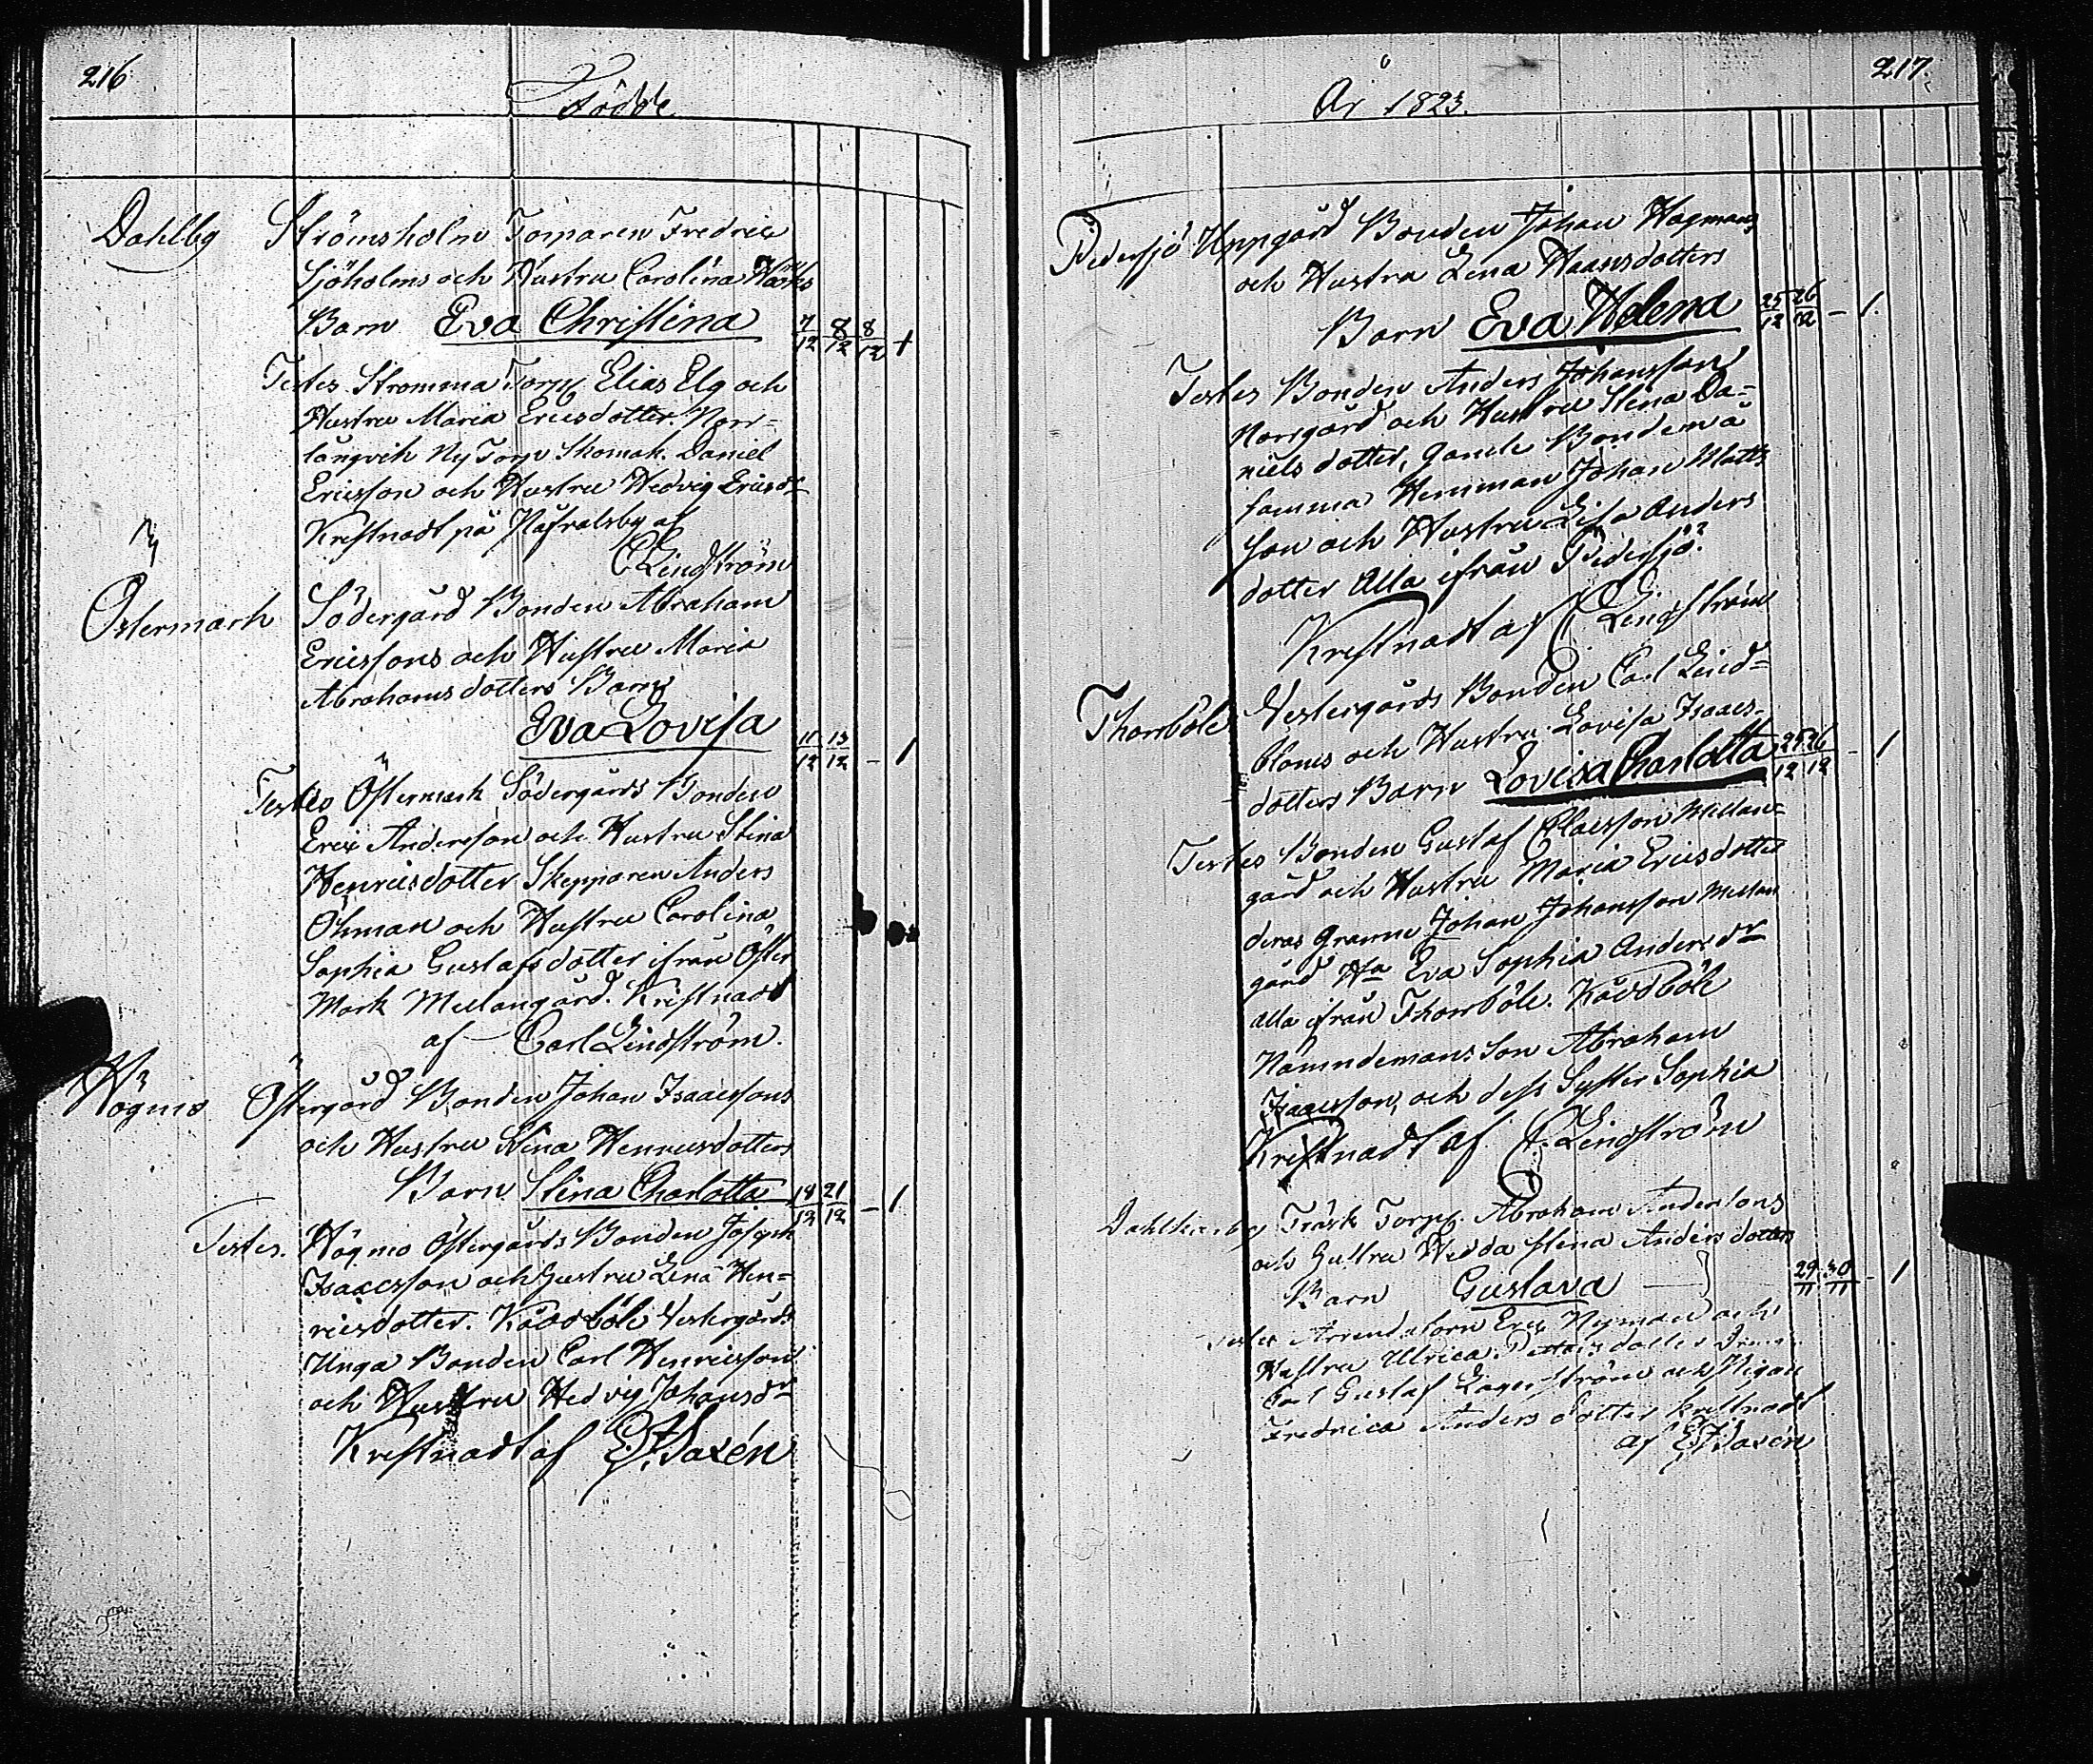 216
Födde
Dahlby Strömsholm Torparen Fredric
Sjöholms och Hustru Carolina
Barn Eva Christina 7/12 8/12 8/12 1
Testes Stromma Torp. Elias Elg och
Hustru Maria Ericsdotter. Norr-
långvik Ny Torp Skomak. Daniel
Ericsson och Hustru Hedvig Ericsdr
Kristnadt på af
C Lindström
Östermark Södergård Bonden Abraham
Ericssons och Hustru Maria
Abrahamsdotters Barn
Eva Lovisa 11/12 13/12 – 1
Testes Östermark Södergårds Bonden
Eric Andersson och Hustru Stina
Henricsdotter Skepparen Anders
Öhman och Hustru Carolina
Sophia Gustafsdotter ifrån Öster
Mark Mellangård. Kristnadt
af Carl Lindström.
Högmo Östergård Bonden Johan Isaacssons
och Hustru Stina Henricsdotters
Barn Stina Charlotta 18/12 21/12 – 1
Testes. Högmo Östergårds Bonden Joseph
Isaacsson och Hustru Lena Hen-
ricsdotter. Kådböle Vestergårds
Unga Bonden Carl Henricsson
och Hustru Hedvig Johansdr
Kristnadt af E J Saxén
217.
År 1823.
Pedersjö Uppgård Bonden Johan Hagmans
och Hustru Lena Hansdotters
Barn Eva Helena 25/12 26/12 – 1.
Testes Bonden Anders Johansson
Norrgård och Hustru Stina Da-
niels dotter, Gamle Bonden å
samma Hemman Johan Matts
son och Hustru Lisa Anders
dotter Alla ifrån Pedersjö.
Kristnadt af C Lindström
Thorrböle Vestergårds Bonden Carl Lind-
bloms och Hustru Lovisa Isaacs-
dotters Barn Lovisa Charlotta 25/12 26/12 – 1
Testes Bonden Gustaf Claesson Mellan-
gård och Hustru Maria Ericsdotter
deras Granne Johan Johansson Mellan
gård Ha Eva Sophia Andersdr
alla ifrån Thorrböle. Kådböle
Nämndemans Son Abraham
Isaacsson, och dess Syster Sophia
Kristnadt af C. Lindström
Träsk Torp. Abraham Anderssons
och Hustru Hedda Stina Andersdotters
Barn Gustava 29/11 30/11 – 1
Testes Arrendatorn Eric Nyman och
Hustru Ulrica dotter Dreng.
Carl Gustaf Lagerström och Pigan
Fredrica Anders dotter kristnadt
af E J Saxén